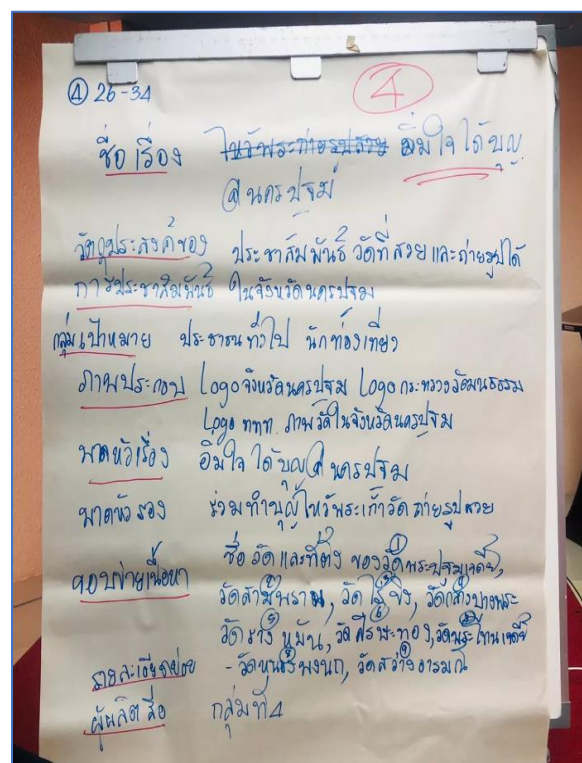 ④ 26-34
④
ชื่อเรื่อง ไหว้พระถ่ายรูปสวย อิ่มใจได้บุญ
@นครปฐม
วัตถุประสงค์ของ ประชาสัมพันธ์วัดที่สวยและถ่ายรูปได้
การประชาสัมพันธ์ ในจังหวัดนครปฐม
กลุ่มเป้าหมาย ประชาชนทั่วไป นักท่องเที่ยว
ภาพประกอบ Logoจังหวัดนครปฐม Logoกระทรวงวัฒนธรรม
Logo ททท. ภาพวัดในจังหวัดนครปฐม
พาดหัวเรื่อง อิ่มใจ ได้บุญ@นครปฐม
พาดหัวรอง ร่วมทำบุญไหว้พระเก้าวัด ถ่ายรูปสวย
ขอบข่ายเนื้อหา ชื่อวัดและที่ตั้ง ของวัดพระปฐมเจดีย์,
วัดสามพราน, วัดไร่ขิง, วัดกลางบางพระ
วัดรางหมัน, วัดศีรษะทอง, วัดพระประโทนเจดีย์
รายละเอียดย่อย - วัดหุบ, วัดสว่างอารมณ์
ผู้ผลิตสื่อ กลุ่มที่4